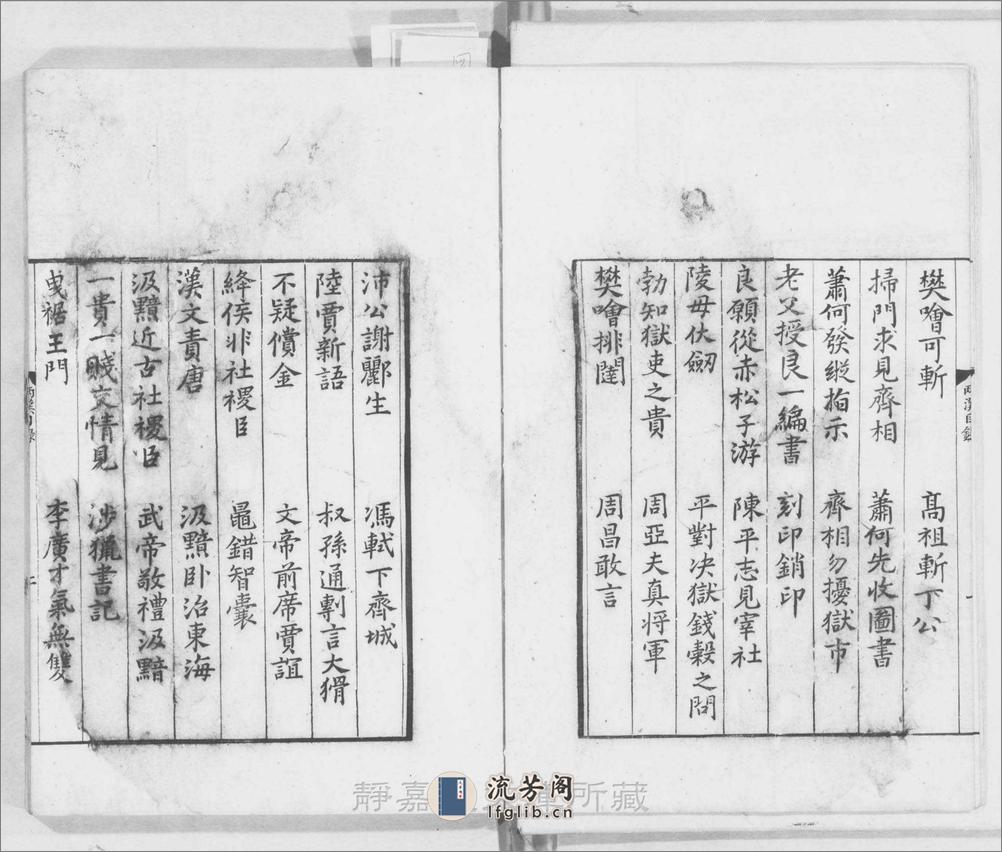 樊噲可斬　高祖斬丁公
掃門求見齊相　蕭何先收圖書
蕭何發縱指示　齊相勿擾獄市
老父授良一編書　刻印銷印
良願從赤松子游　陳平志見宰社
陵毋伏劒　平對决獄錢穀之問
勃知獄吏之貴　周亞夫真將軍
樊噲排闥　周昌敢言
沛公謝酈生　馮軾下齊城
陸賈新語　叔孫通剸言大猾
不疑償金　文帝前席賈誼
絳侯非社稷臣　鼂錯智囊
漢文責唐　汲黯卧治東海
汲黯近古社稷臣　武帝敬禮汲黯
一貴一賤交情見　涉獵書記
曳裾王門　李廣才氣無雙
兩漢目錄
兩漢目錄
靜嘉　所藏
流芳阁
lfglib.cn